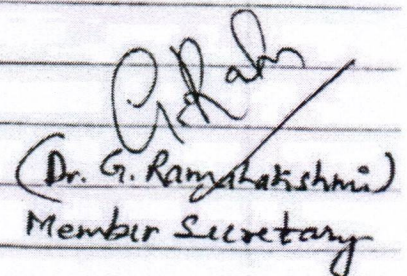 G. Ram
(Dr. G. Ramalakshmi)
Member Secretary